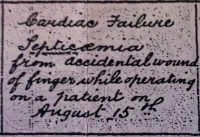 Cardiac Failure
Septicæmia
from accidental wound
of finger, while operating
on a patient on
August 15th